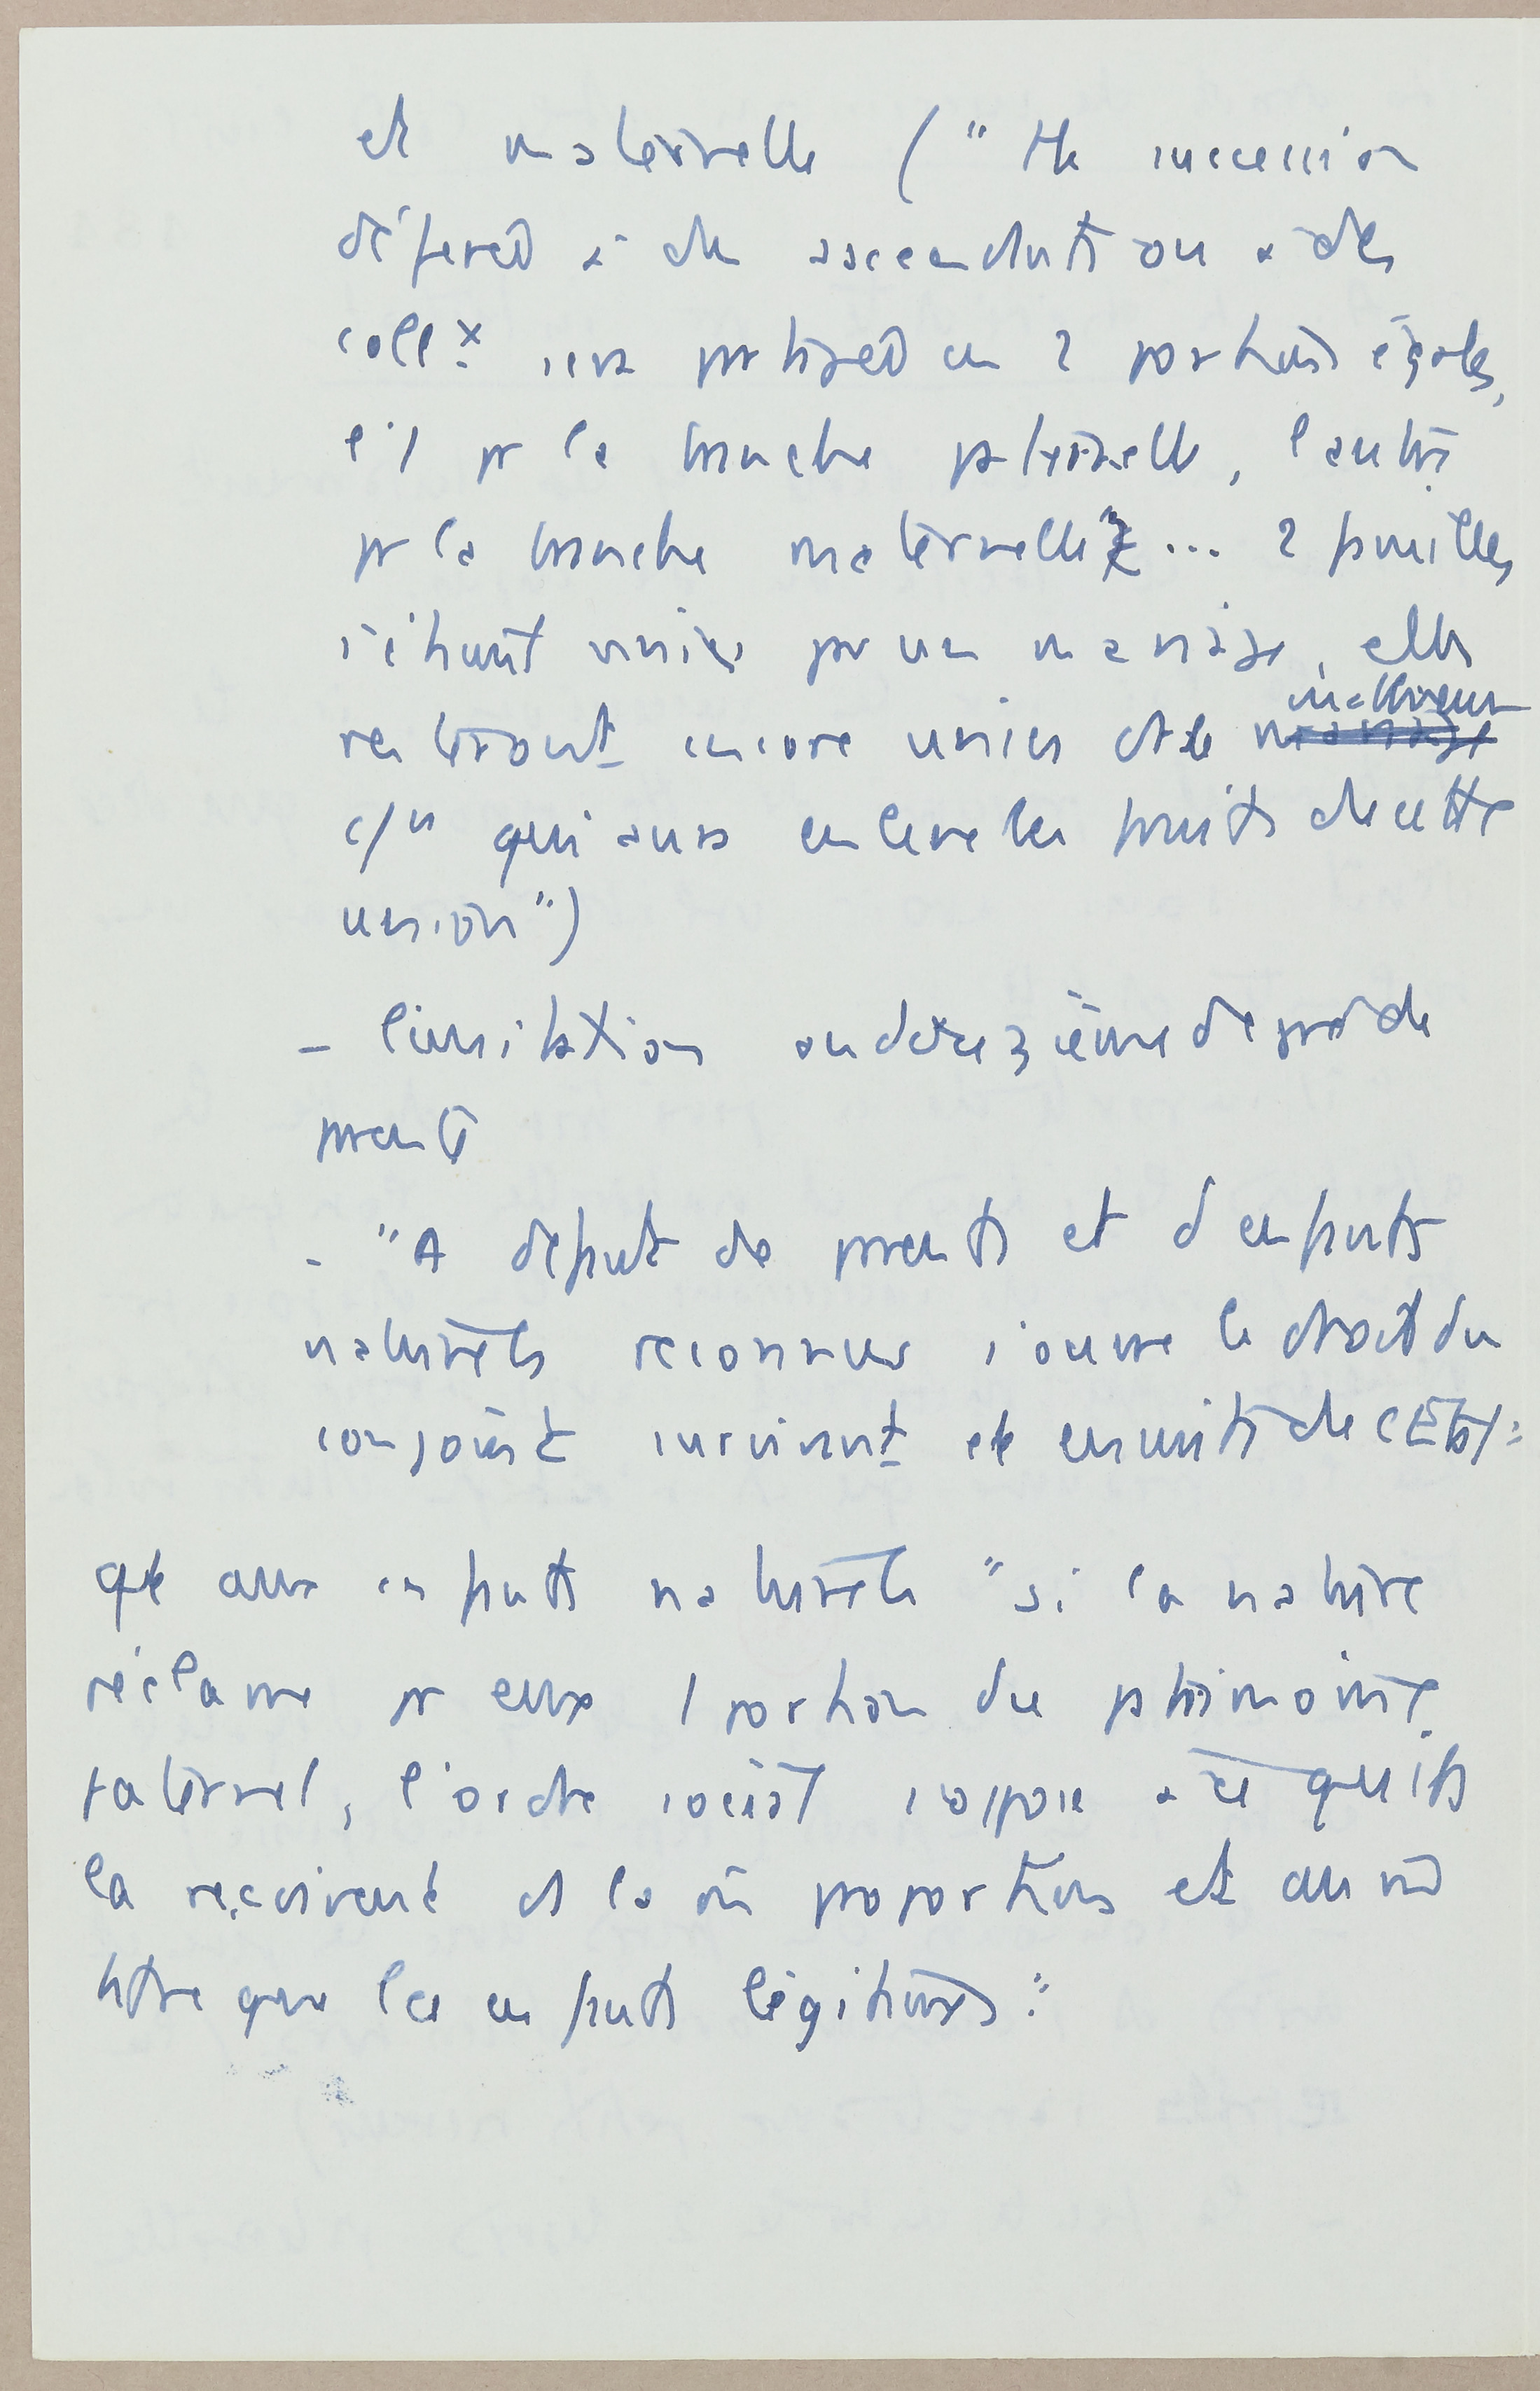 et maternelle ("tte succession
déférée à des ascendants ou à des
collx sera partagée en 2 portions égales,
l'1 pr la branche paternelle, l'autre
pr la branche maternelle ... 2 familles
s'étaient unies par un mariage, elles
resteront encore unies ds le mariage malheur
c/n qui aura enlevé les fruits de cette
union")
- limitation au douzième degré de
parenté
- "A défaut de parents et d'enfants
naturels reconnus s'ouvre le droit du
conjoint survivant et ensuite de l'Etat"
qt aux enfants naturels "si la nature
réclame pr eux 1 portion du patrimoine
paternel, l'ordre social s'oppose à ce qu'ils
la reçoivent ds la m̄ proportions et au m̄
titre que les enfants légitimes."